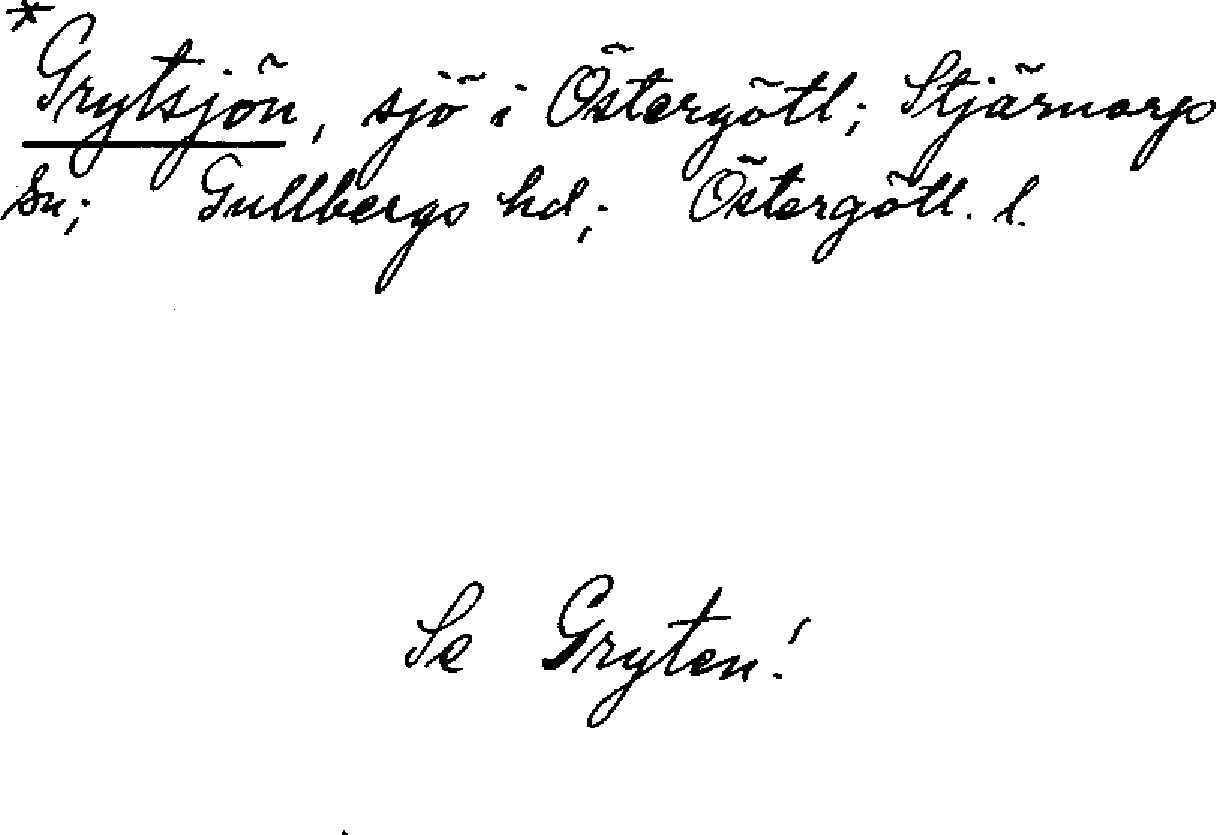 *Grytsjön, sjö i Östergötl; Stjärnorps
sn; Gullbergs hd; Östergötl. l.
Se Gryten!